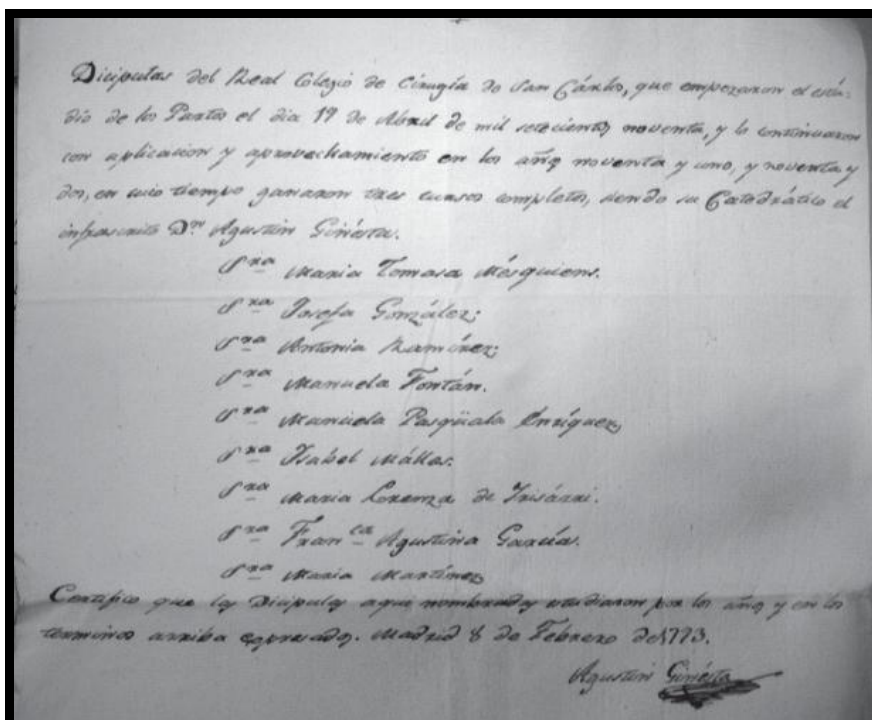 Diciputas del Real Colegio de Cirugía de San Cárlos, que empezaron el estú-
dio de los Partos el dia 19 de Abril de mil setecientos noventa, y lo continuaron
con aplicacion y aprovechamiento en los años noventa y uno, y noventa y
dos, en cuio tiempo ganaron tres cursos completos, siendo su Catedrático el
infrascrito Dn. Agustin Ginésta.
Sra Maria Tomasa Mésquiens.
Sra Josefa González;
Sra Antonia Ramírez;
Sra Manuela Fontán.
Sra Manuela Pasqüala Enríquez
Sra Isabel Mállas.
Sra Maria Lorenza de Irisárri.
Sra Franca Agustina García.
Sra Maria Martínez
Certifico que las Dicipulas aqui nombradas estudiaron por los años y en los
terminos arriba expresados. Madrid 8 de Febrero de 1793.
Agustin Ginésta